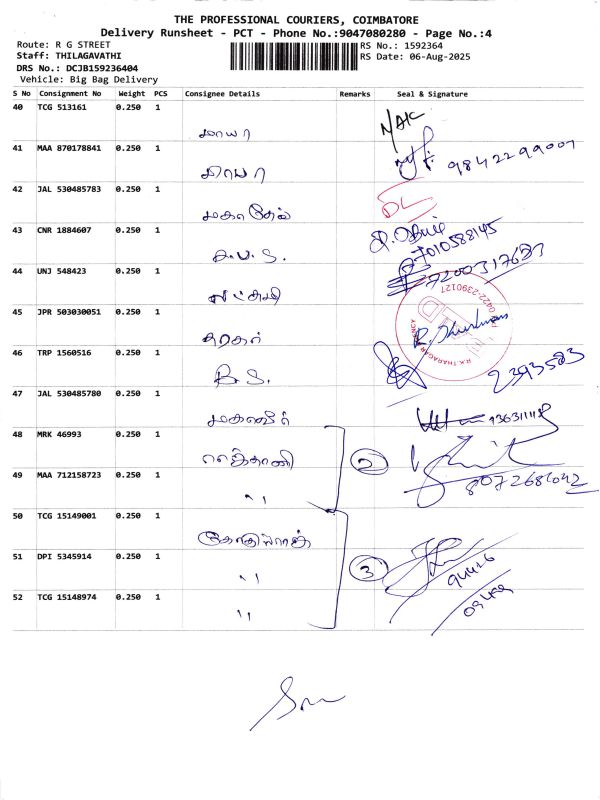 THE PROFESSIONAL COURIERS, COIMBATORE
Delivery Runsheet - PCT - Phone No.:9047080280 - Page No.:4
Route: R G STREET
RS No.: 1592364
Staff: THILAGAVATHI
RS Date: 06-Aug-2025
DRS No.: DCJB159236404
Vehicle: Big Bag Delivery
S No Consignment No Weight PCS Consignee Details Remarks Seal & Signature
40 TCG 513161 0.250 1
மாயா
41 MAA 870178841 0.250 1
மாயா 9842299007
42 JAL 530485783 0.250 1
DL
43 CNR 1884607 0.250 1
7010588145
44 UNJ 548423 0.250 1
7200317683
45 JPR 503030051 0.250 1
0422-2390127
46 TRP 1560516 0.250 1
B.S. 2393583
47 JAL 530485780 0.250 1
48 MRK 46993 0.250 1
2
49 MAA 712158723 0.250 1
"
50 TCG 15149001 0.250 1
51 DPI 5345914 0.250 1
" 3
52 TCG 15148974 0.250 1
"